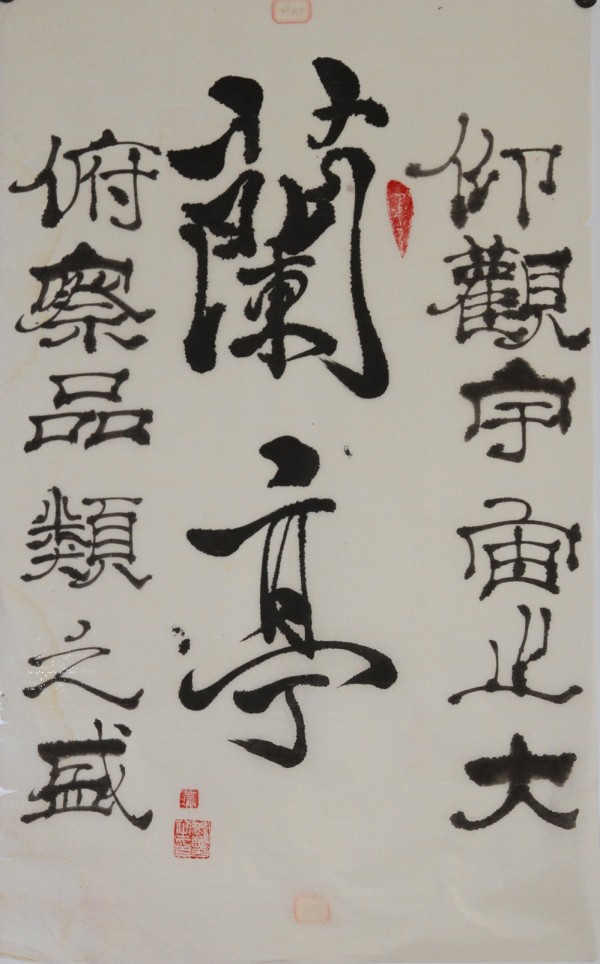 仰觀宇宙之大
蘭亭
俯察品類之盛